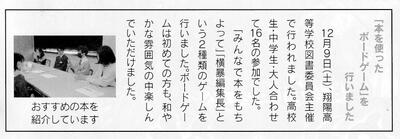 「本を使った
ボードゲーム」を
行いました
12月9日(土)、翔陽高
等学校図書委員会主催
で行われました。高校
生・中学生・大人合わせ
て16名の参加でした。
「みんなで本をもち
よって」「横暴編集長」と
いう2種類のゲームを
行いました。ボードゲー
ムは初めての方も、和や
かな雰囲気の中楽しん
でいただけました。
おすすめの本を
紹介しています